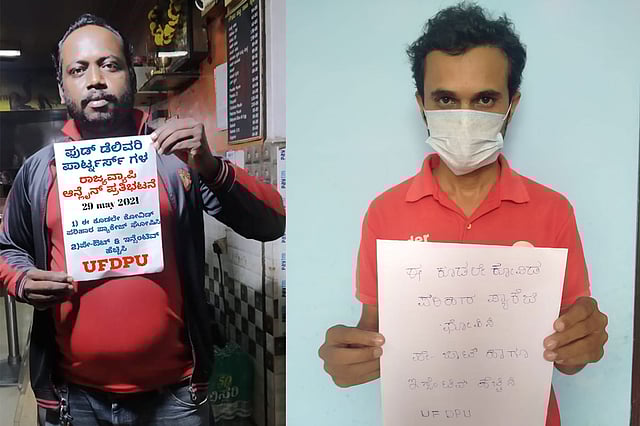 ಫುಡ್ ಡೆಲಿವರಿ
ಪಾರ್ಟ್ನರ್ಸ್ ಗಳ
ರಾಜ್ಯವ್ಯಾಪಿ
ಆನ್ಲೈನ್ ಪ್ರತಿಭಟನೆ
29 may 2021
1) ಈ ಕೂಡಲೇ ಕೋವಿಡ್
ಪರಿಹಾರ ಪ್ಯಾಕೇಜ್ ಘೋಷಿಸಿ
2) ಪೇ-ಔಟ್ & ಇನ್ಸೆಂಟಿವ್
ಹೆಚ್ಚಿಸಿ
UFDPU
ಈ ಕೂಡಲೇ ಕೋವಿಡ
ಪರಿಹಾರ ಪ್ಯಾಕೆಜ
ಘೋಷಿಸಿ
ಪೇ-ಔಟ್ ಹಾಗೂ
ಇನ್ಸೆಂಟಿವ್ ಹೆಚ್ಚಿಸಿ
UFDPU